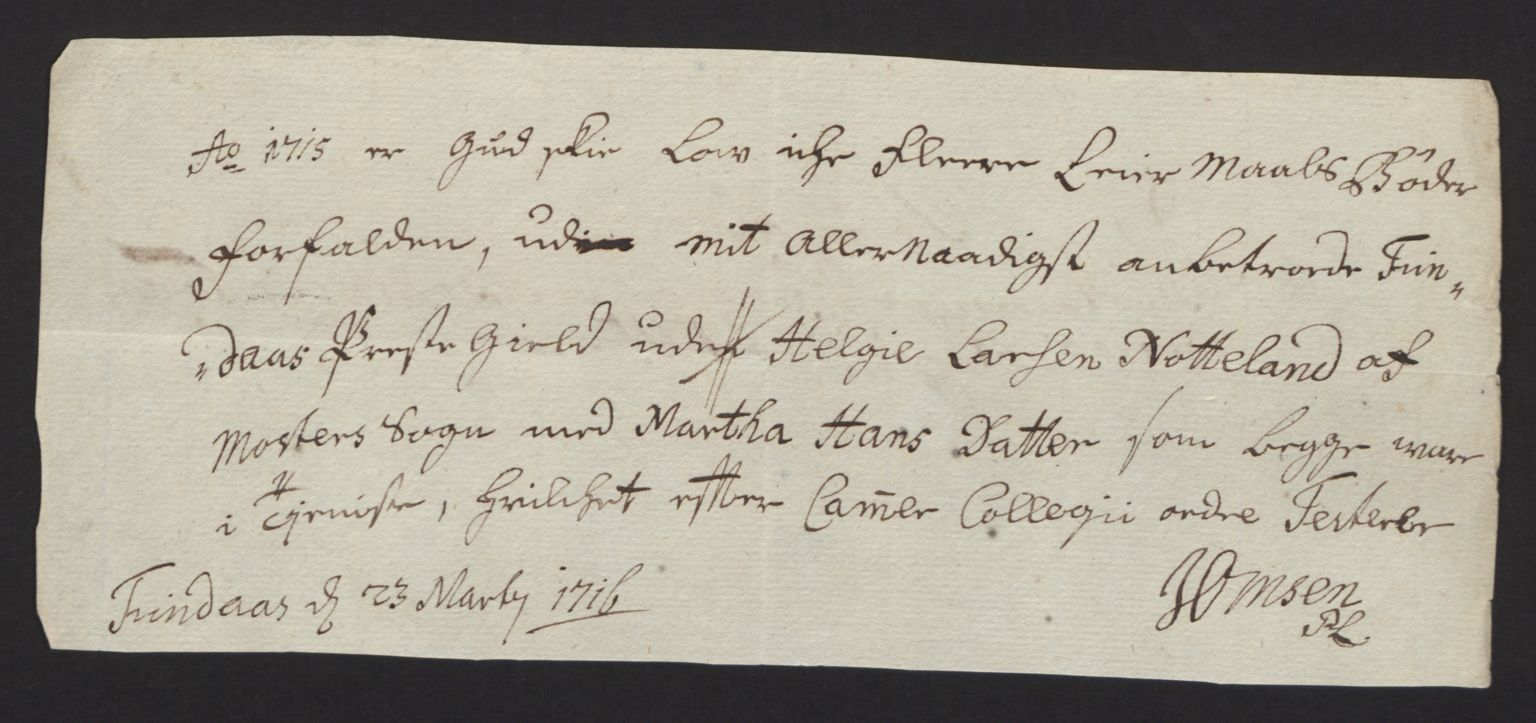 Ao 1715 er Gud skie Low iche fleere Leier Maals Bøder
forfalden, udi mit Allernaadigst anbetroede Fin„
„daas Preste Gield uden Helgie Larsen Notteland af
Mosters Sogn med Martha Hans Datter som begge ware
i Tjeniste, hvilchet efter Camer Collegii ordre Testerer
Findaas d 23 Marty 1716